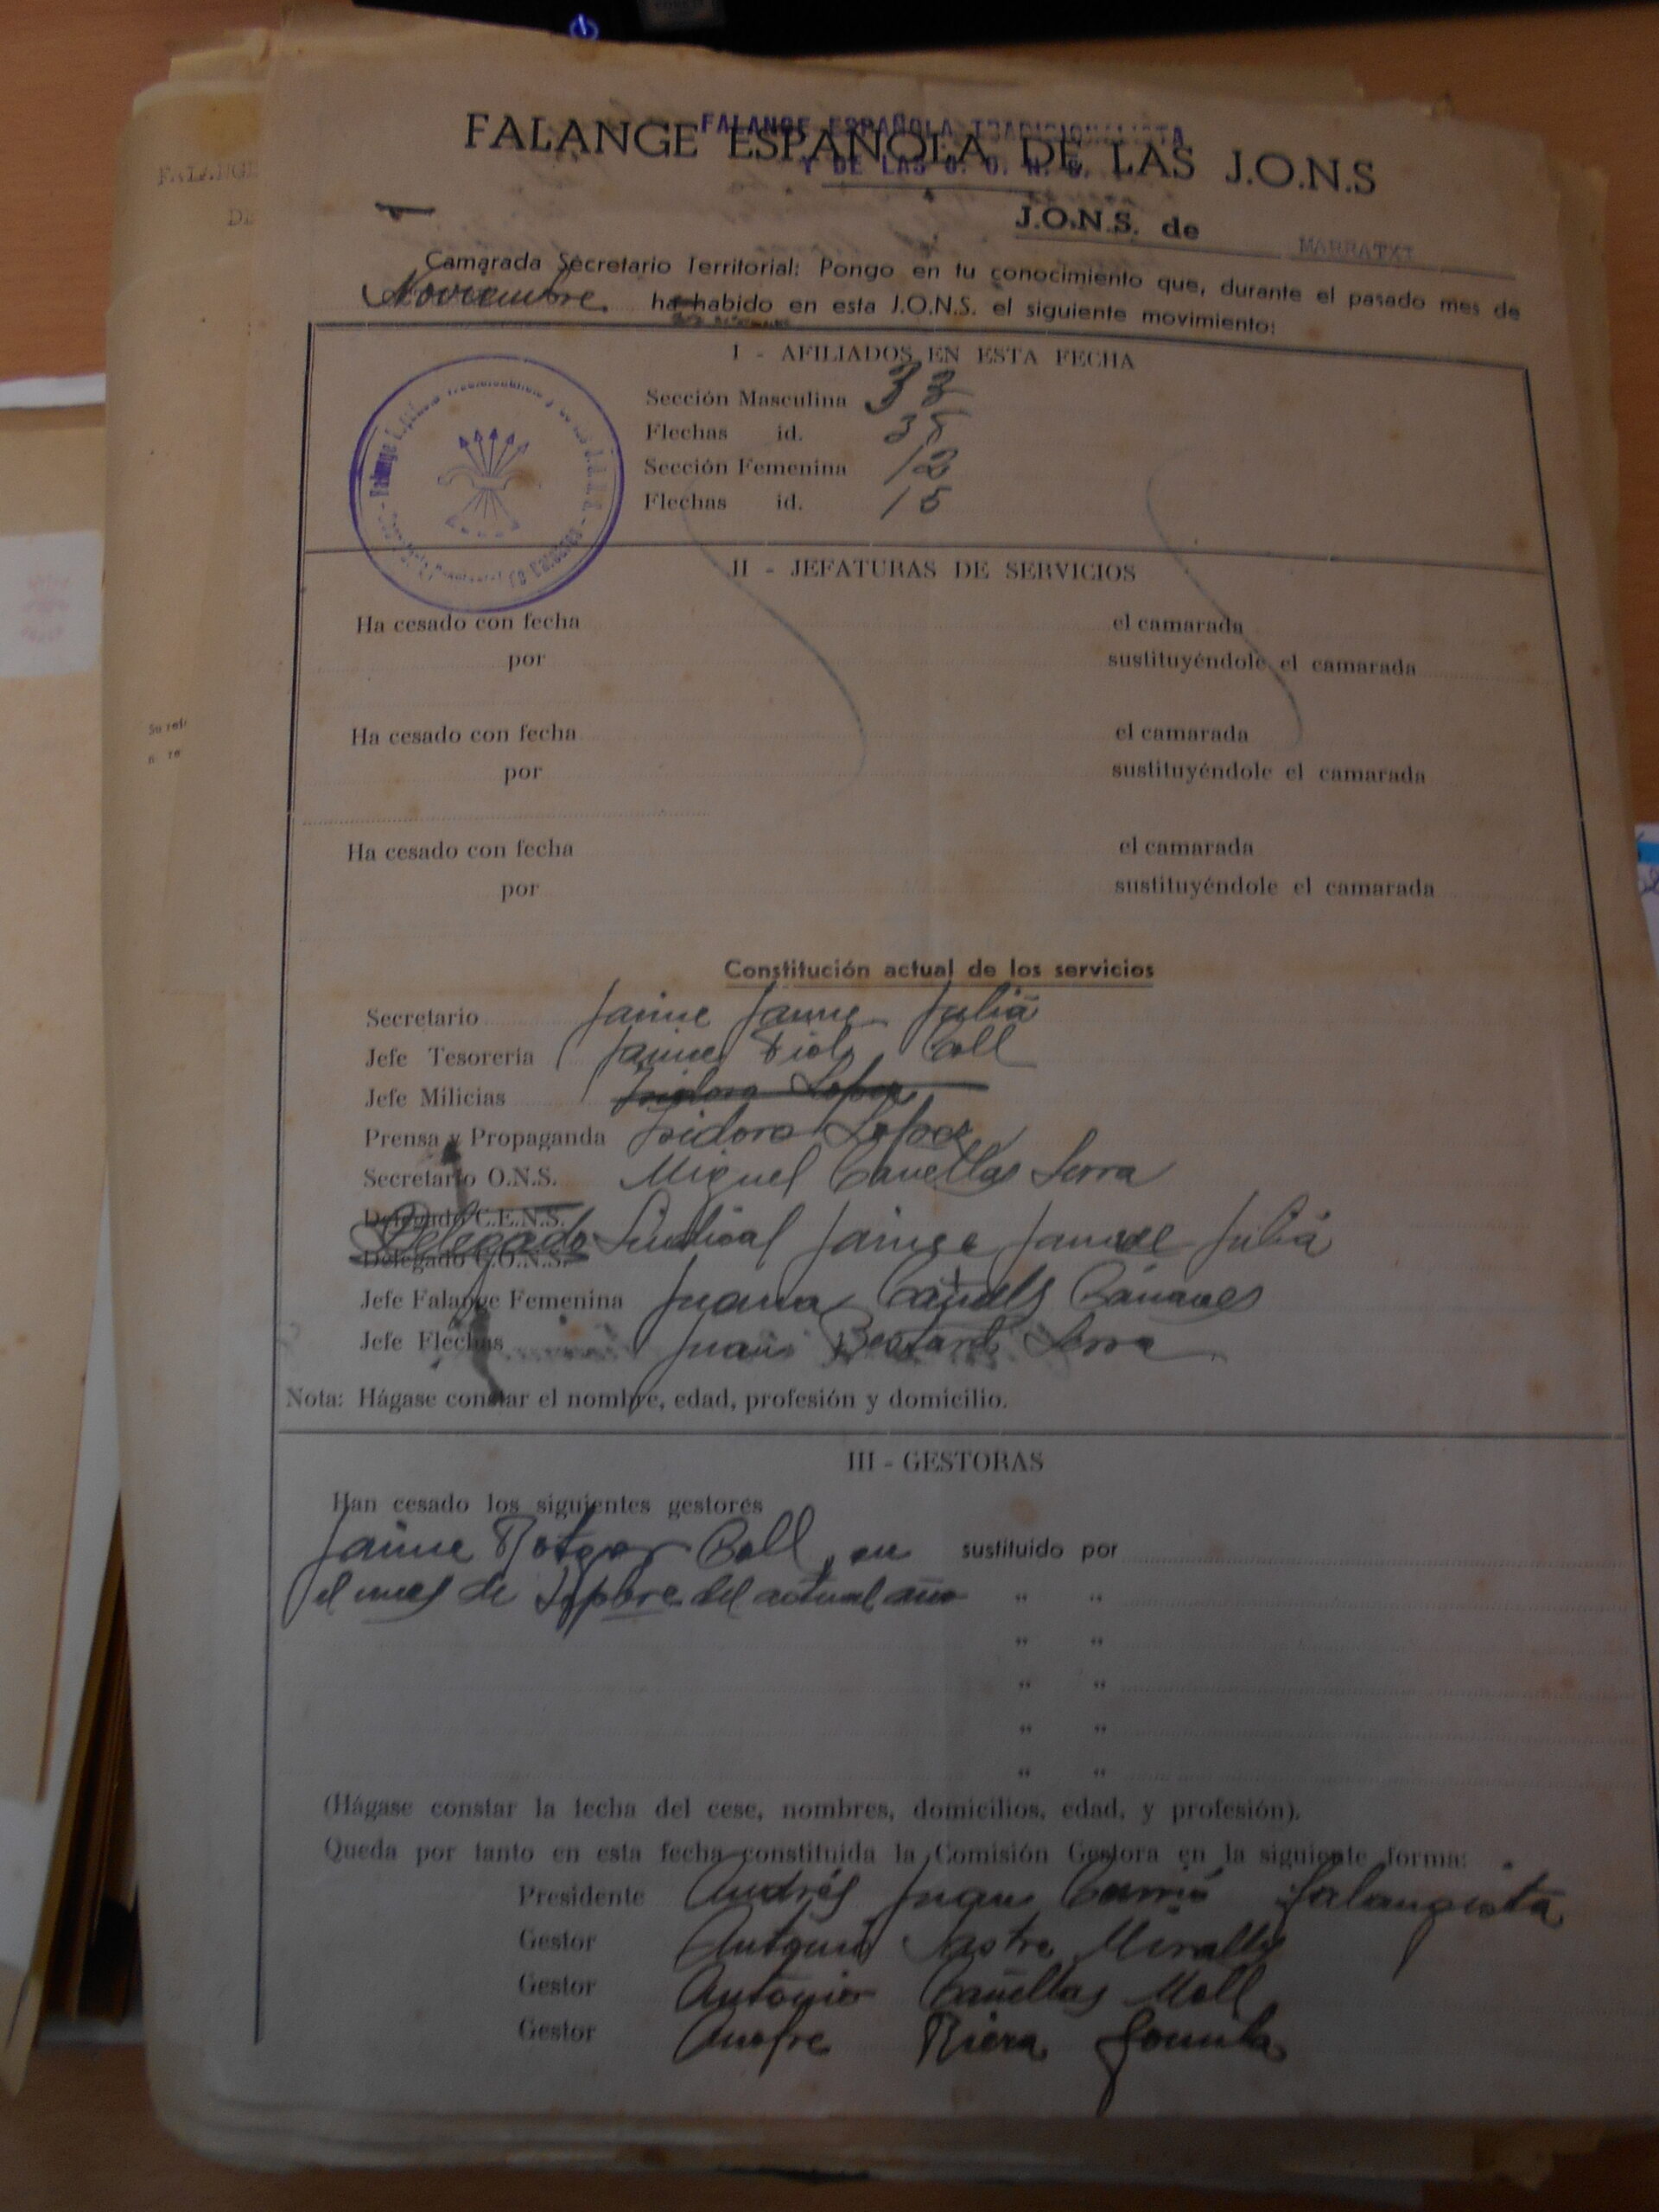 FALANGE ESPAÑOLA DE LAS J.O.N.S
FALANGE ESPAÑOLA TRADICIONALISTA
Y DE LAS J. O. N. S.
J.O.N.S. de MARRATXI
Camarada Secretario Territorial: Pongo en tu conocimiento que, durante el pasado mes de
Noviembre ha habido en esta J.O.N.S. el siguiente movimiento:
I - AFILIADOS EN ESTA FECHA
Sección Masculina 33
Flechas id. 35
Sección Femenina 12
Flechas id. 15
II - JEFATURAS DE SERVICIOS
Ha cesado con fecha el camarada
por sustituyéndole el camarada
Ha cesado con fecha el camarada
por sustituyéndole el camarada
Ha cesado con fecha el camarada
por sustituyéndole el camarada
Constitución actual de los servicios
Secretario Jaime Jaume Juliá
Jefe Tesorería Jaime Fiol Coll
Jefe Milicias Isidoro Lopez
Prensa y Propaganda Isidoro Lopez
Secretario O.N.S. Miguel Cañellas Serra
Delegado C.E.N.S.
Delegado Sindical Jaime Jaume Juliá
Delegado C.O.N.S.
Jefe Falange Femenina Juana
Jefe Flechas Juan Bestard Serra
Nota: Hágase constar el nombre, edad, profesión y domicilio.
III - GESTORAS
Han cesado los siguientes gestores
Jaime Rotger Coll, en sustituido por
el mes de Sepbre del actual año " "
" "
" "
" "
" "
(Hágase constar la fecha del cese, nombres, domicilios, edad, y profesión).
Queda por tanto en esta fecha constituida la Comisión Gestora en la siguiente forma:
Presidente Andrés Juan falangista
Gestor Antonio Sastre Miralles
Gestor Antonio Cañellas Moll
Gestor Onofre Riera Gomila
FALANGE
DE
Su refe